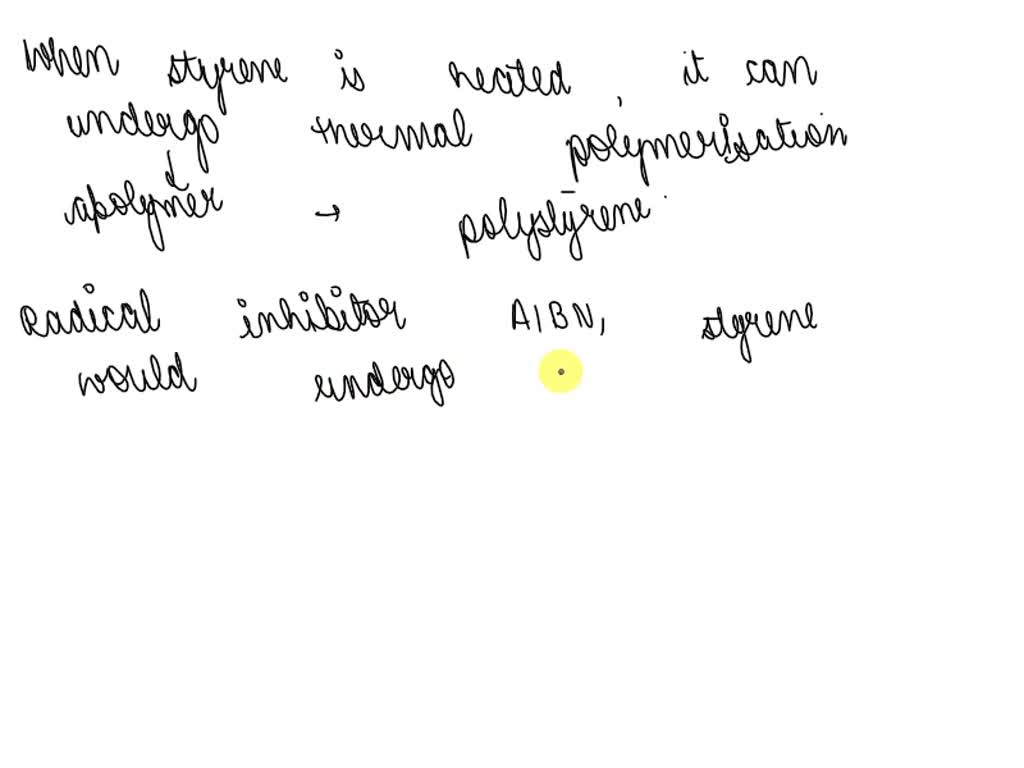 When styrene is heated, it can
undergo thermal polymerisation
↓
apolymer → polystyrene.
Radical inhibitor AIBN, styrene
would undergo